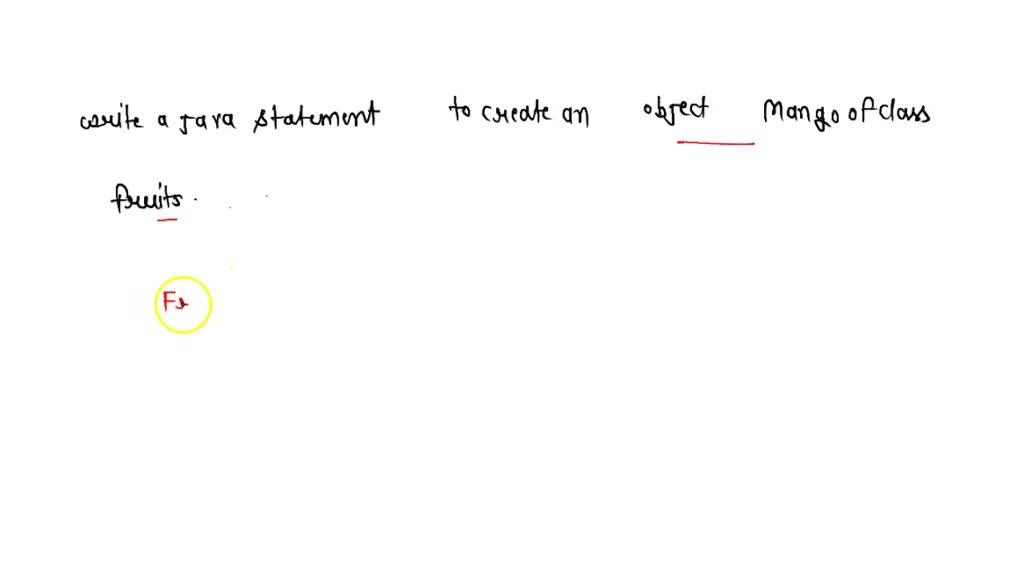 write a java statement to create an object Mango of class
fruits.
Fr